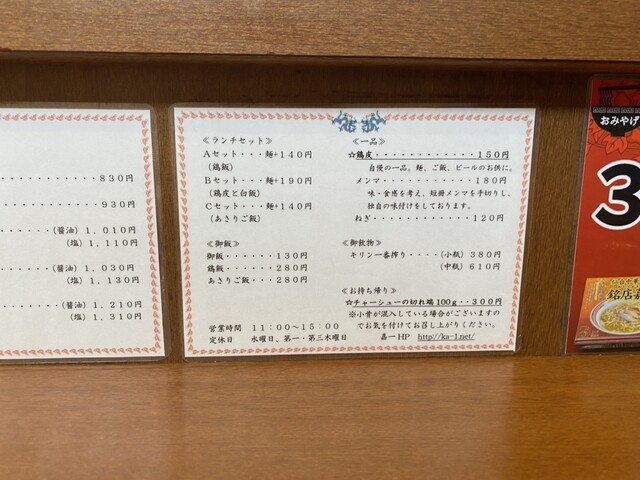 830円
930円
(醤油) 1,010円
(塩) 1,110円
(醤油) 1,030円
(塩) 1,130円
(醤油) 1,210円
(塩) 1,310円
≪ランチセット≫
Aセット・・・麺+140円
(鶏飯)
Bセット・・・麺+190円
(鶏皮と白飯)
Cセット・・・麺+140円
(あさりご飯)
≪御飯≫
御飯・・・・・・130円
鶏飯・・・・・・280円
あさりご飯・・・280円
営業時間 11:00~15:00
定休日 水曜日、第一・第三木曜日
≪一品≫
☆鶏皮・・・・・・・・・・・・150円
自慢の一品。麺、ご飯、ビールのお供に。
メンマ・・・・・・・・・・・180円
味・食感を考え、短冊メンマを手切りし、
独自の味付けをしております。
ねぎ・・・・・・・・・・・・120円
≪御飲物≫
キリン一番搾り・・・・(小瓶) 380円
(中瓶) 610円
≪お持ち帰り≫
☆チャーシューの切れ端100g・・300円
※小骨が混入している場合がございますの
でお気を付けてお召し上がりください。
嘉一HP http://ka-1.net/
おみやげ
3
銘店